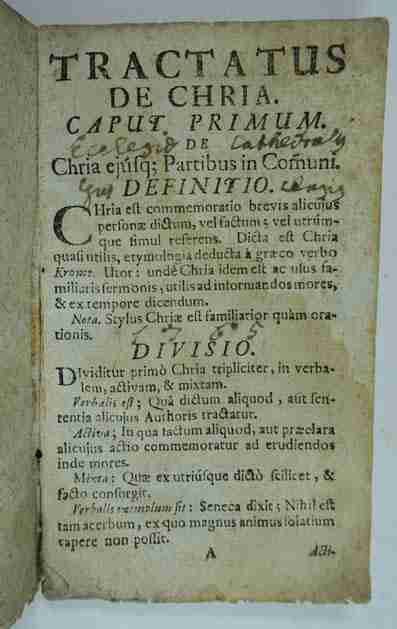 TRACTATUS
DE CHRIA.
CAPUT PRIMUM.
DE
Chria ejúsq; Partibus in Com̃uni.
DEFINITIO.
CHria est commemoratio brevis alicujus
personæ dictum, vel factum; vel utrúm-
que simul referens. Dicta est Chria
quasi utilis, etymologia deducta à græco verbo
Utor: undè Chria idem est ac usus fa-
miliaris sermonis, utilis ad informandos mores,
& ex tempore dicendum.
Nota. Stylus Chriæ est familiarior quàm ora-
tionis.
1765
DIVISIO.
DIviditur primò Chria tripliciter, in verba-
lem, activam, & mixtam.
Verbalis est; Quâ dictum aliquod, aut sen-
tentia alicujus Authoris tractatur.
Activa; In qua factum aliquod, aut præclara
alicujus actio commemoratur ad erudiendos
inde mores.
Mixta: Quæ ex utriúsque dictò scilicet, &
facto consurgit.
Verbalis exemplum sit: Seneca dixit; Nihil est
tam acerbum, ex quo magnus animus solatium
capere non possit.
A
Acti-